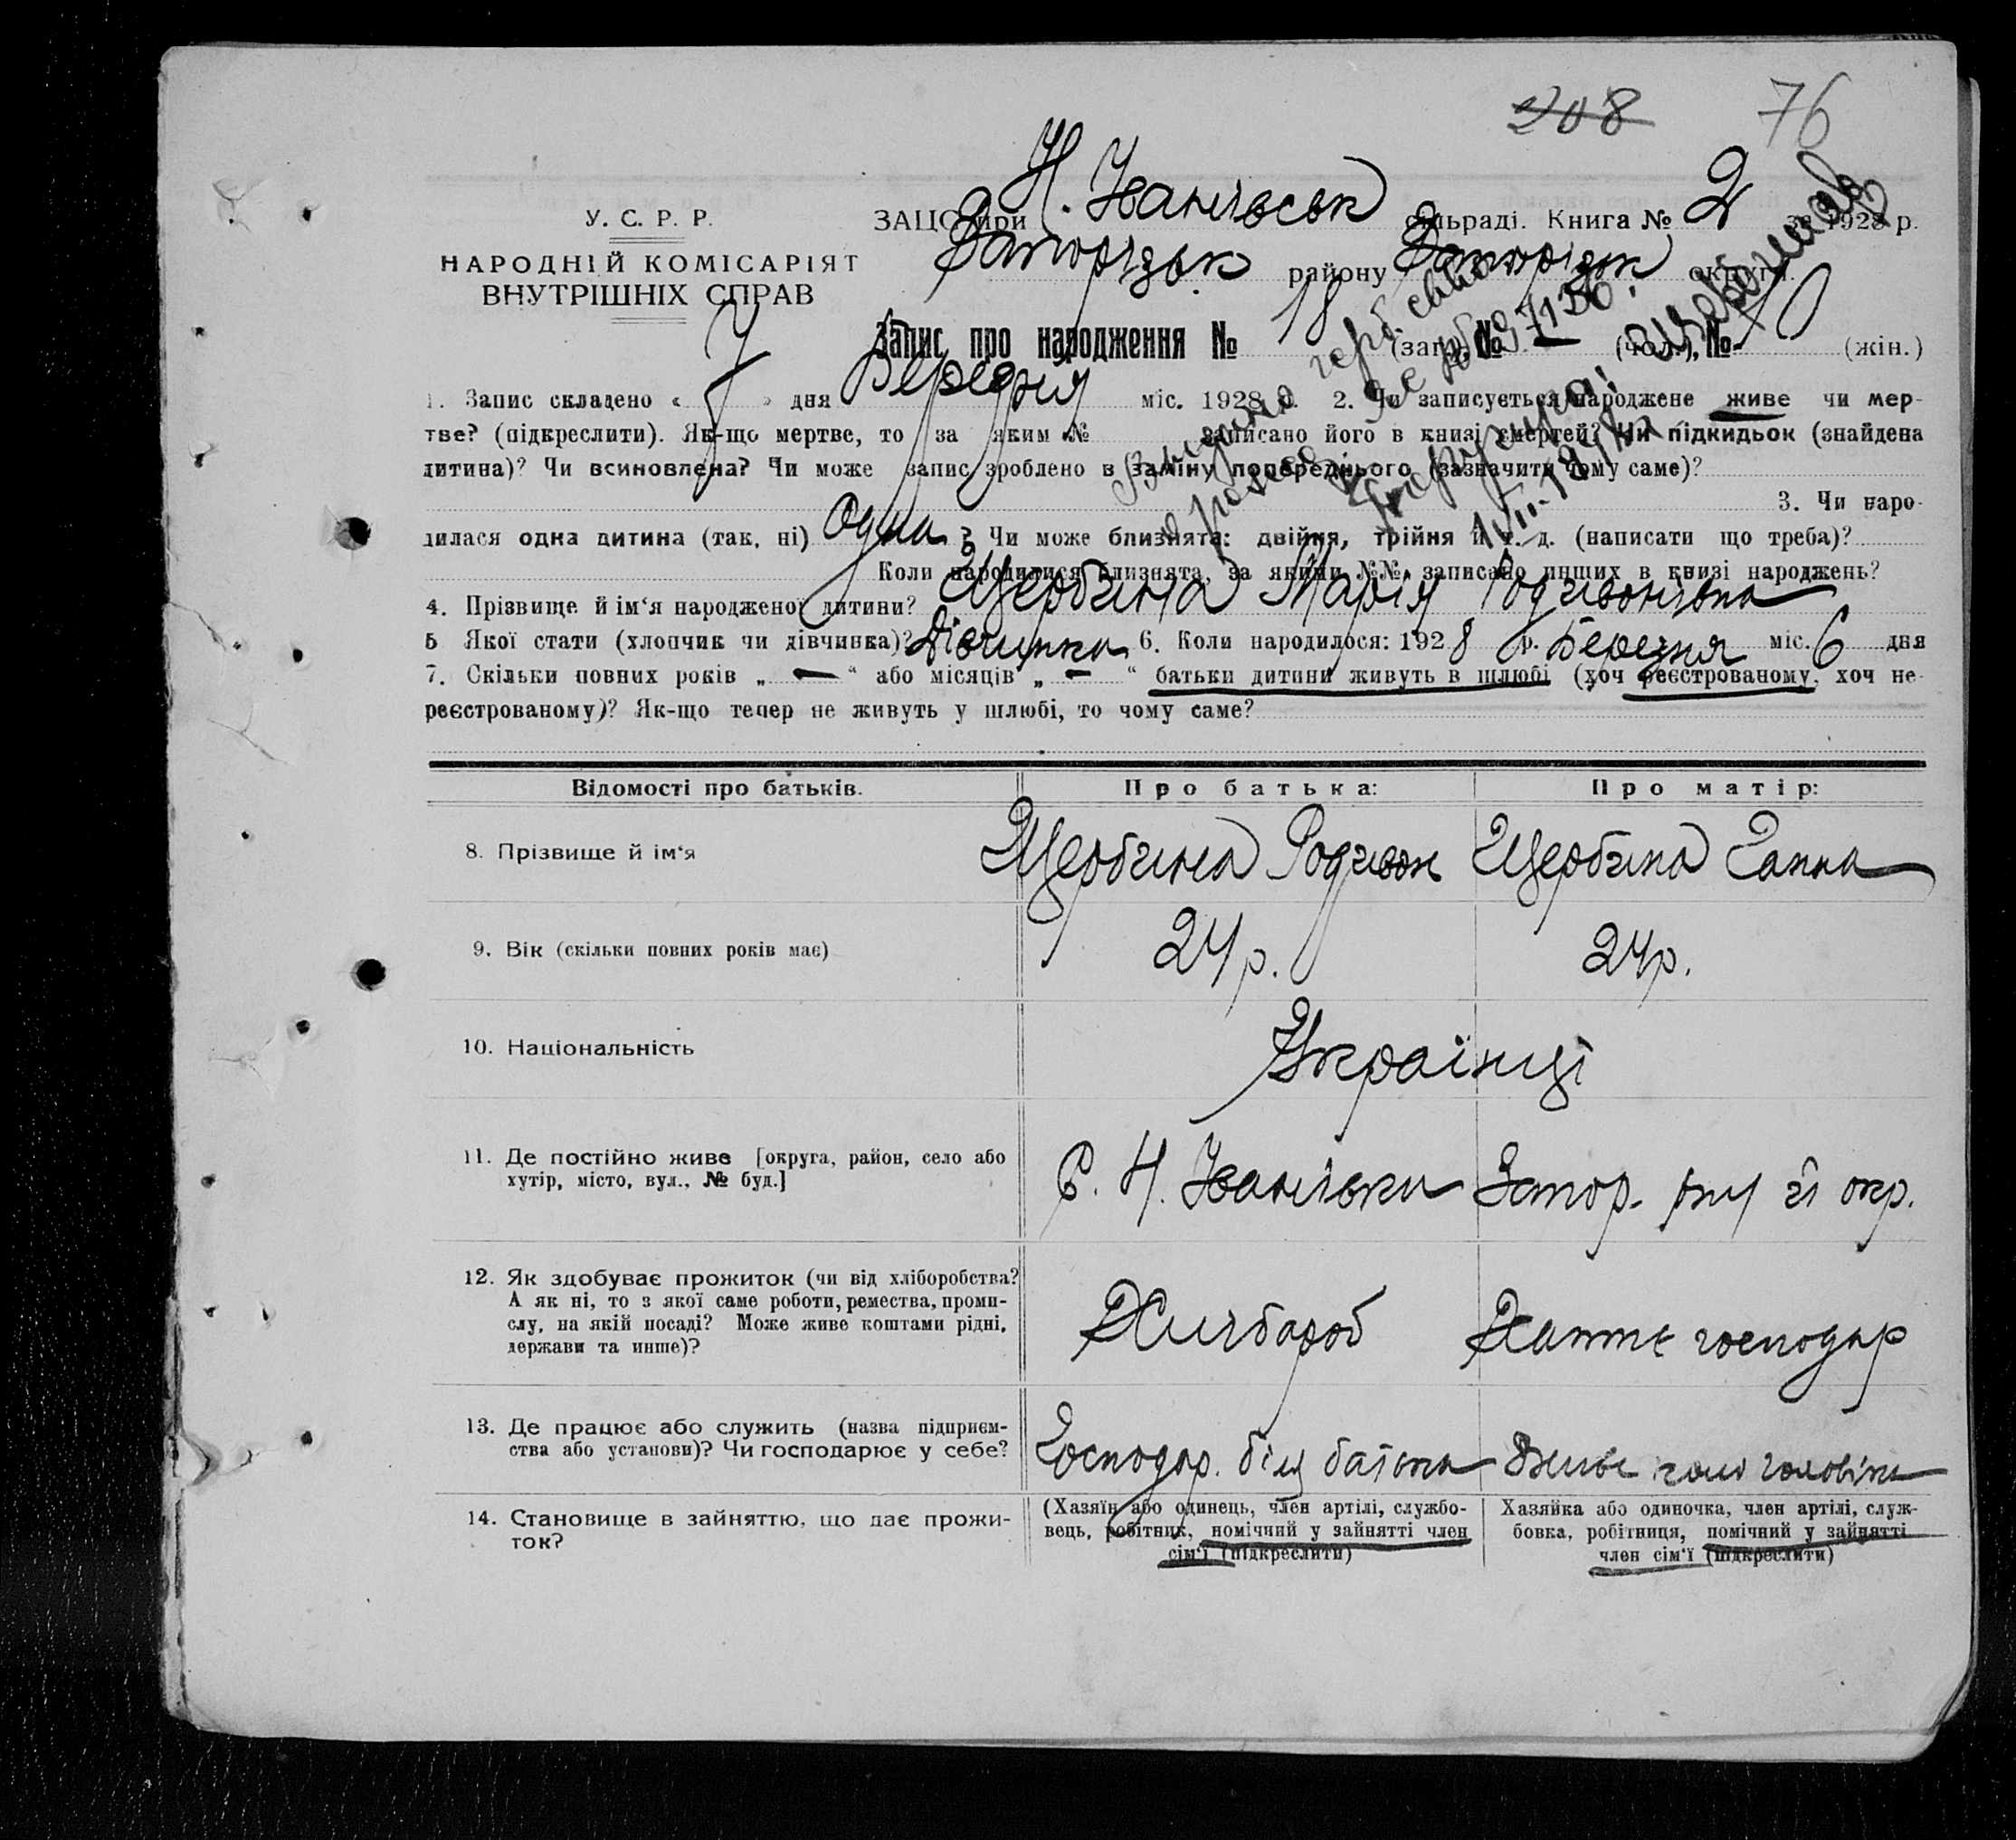 208 76
У. С. Р. Р.
НАРОДНІЙ КОМІСАРІЯТ
ВНУТРІШНІХ СПРАВ
ЗАЦС при Н. Іванівськ сільраді. Книга № 2 за 1928 р.
Запорізьк району Запорізьк округи.
Запис про народження № 18 (заг.), № — (чол.), № 10 (жін.)
1. Запис складено « 7 » дня Березня міс. 1928 р. 2. Чи записується народжене живе чи мер-
тве? (підкреслити). Як-що мертве, то за яким № записано його в книзі смертей? Чи підкидьок (знайдена
дитина)? Чи всиновлена? Чи може запис зроблено в заміну попереднього (зазначити чому саме)?
3. Чи наро-
дилася одна дитина (так, ні) Одна ? Чи може близнята: двійня, трійня й т. д. (написати що треба)?
Коли народилися близнята, за якими №№ записано инших в книзі народжень?
4. Прізвище й ім'я народженої дитини? Щербина Марія Родивонівна
5 Якої стати (хлопчик чи дівчинка)? Дівчинка 6. Коли народилося: 1928 р. Березня міс. 6 дня
7. Скільки повних років „ — “ або місяців „ — “ батьки дитини живуть в шлюбі (хоч реєстрованому, хоч не-
реєстрованому)? Як-що тепер не живуть у шлюбі, то чому саме?
Відомості про батьків. Про батька: Про матір:
8. Прізвище й ім'я Щербина Родивон Щербина Ганна
9. Вік (скільки повних років має) 24 р. 24 р.
10. Національність Українці
11. Де постійно живе [округа, район, село або
хутір, місто, вул., № буд.] С. Н. Іванівки Запор. р-ну й окр.
12. Як здобуває прожиток (чи від хліборобства?
А як ні, то з якої саме роботи, ремества, проми-
слу, на якій посаді? Може живе коштами рідні,
держави та инше)? Хлібороб Хатнє господар
13. Де працює або служить (назва підприєм-
ства або установи)? Чи господарює у себе? Господар. біля батька Живе коло чоловіка
14. Становище в зайняттю, що дає прожи-
ток?
(Хазяїн або одинець, член артілі, службо-
вець, робітник, помічний у зайнятті член
сім'ї (підкреслити)
Хазяйка або одиночка, член артілі, служ-
бовка, робітниця, помічний у зайнятті
член сім'ї (підкреслити)